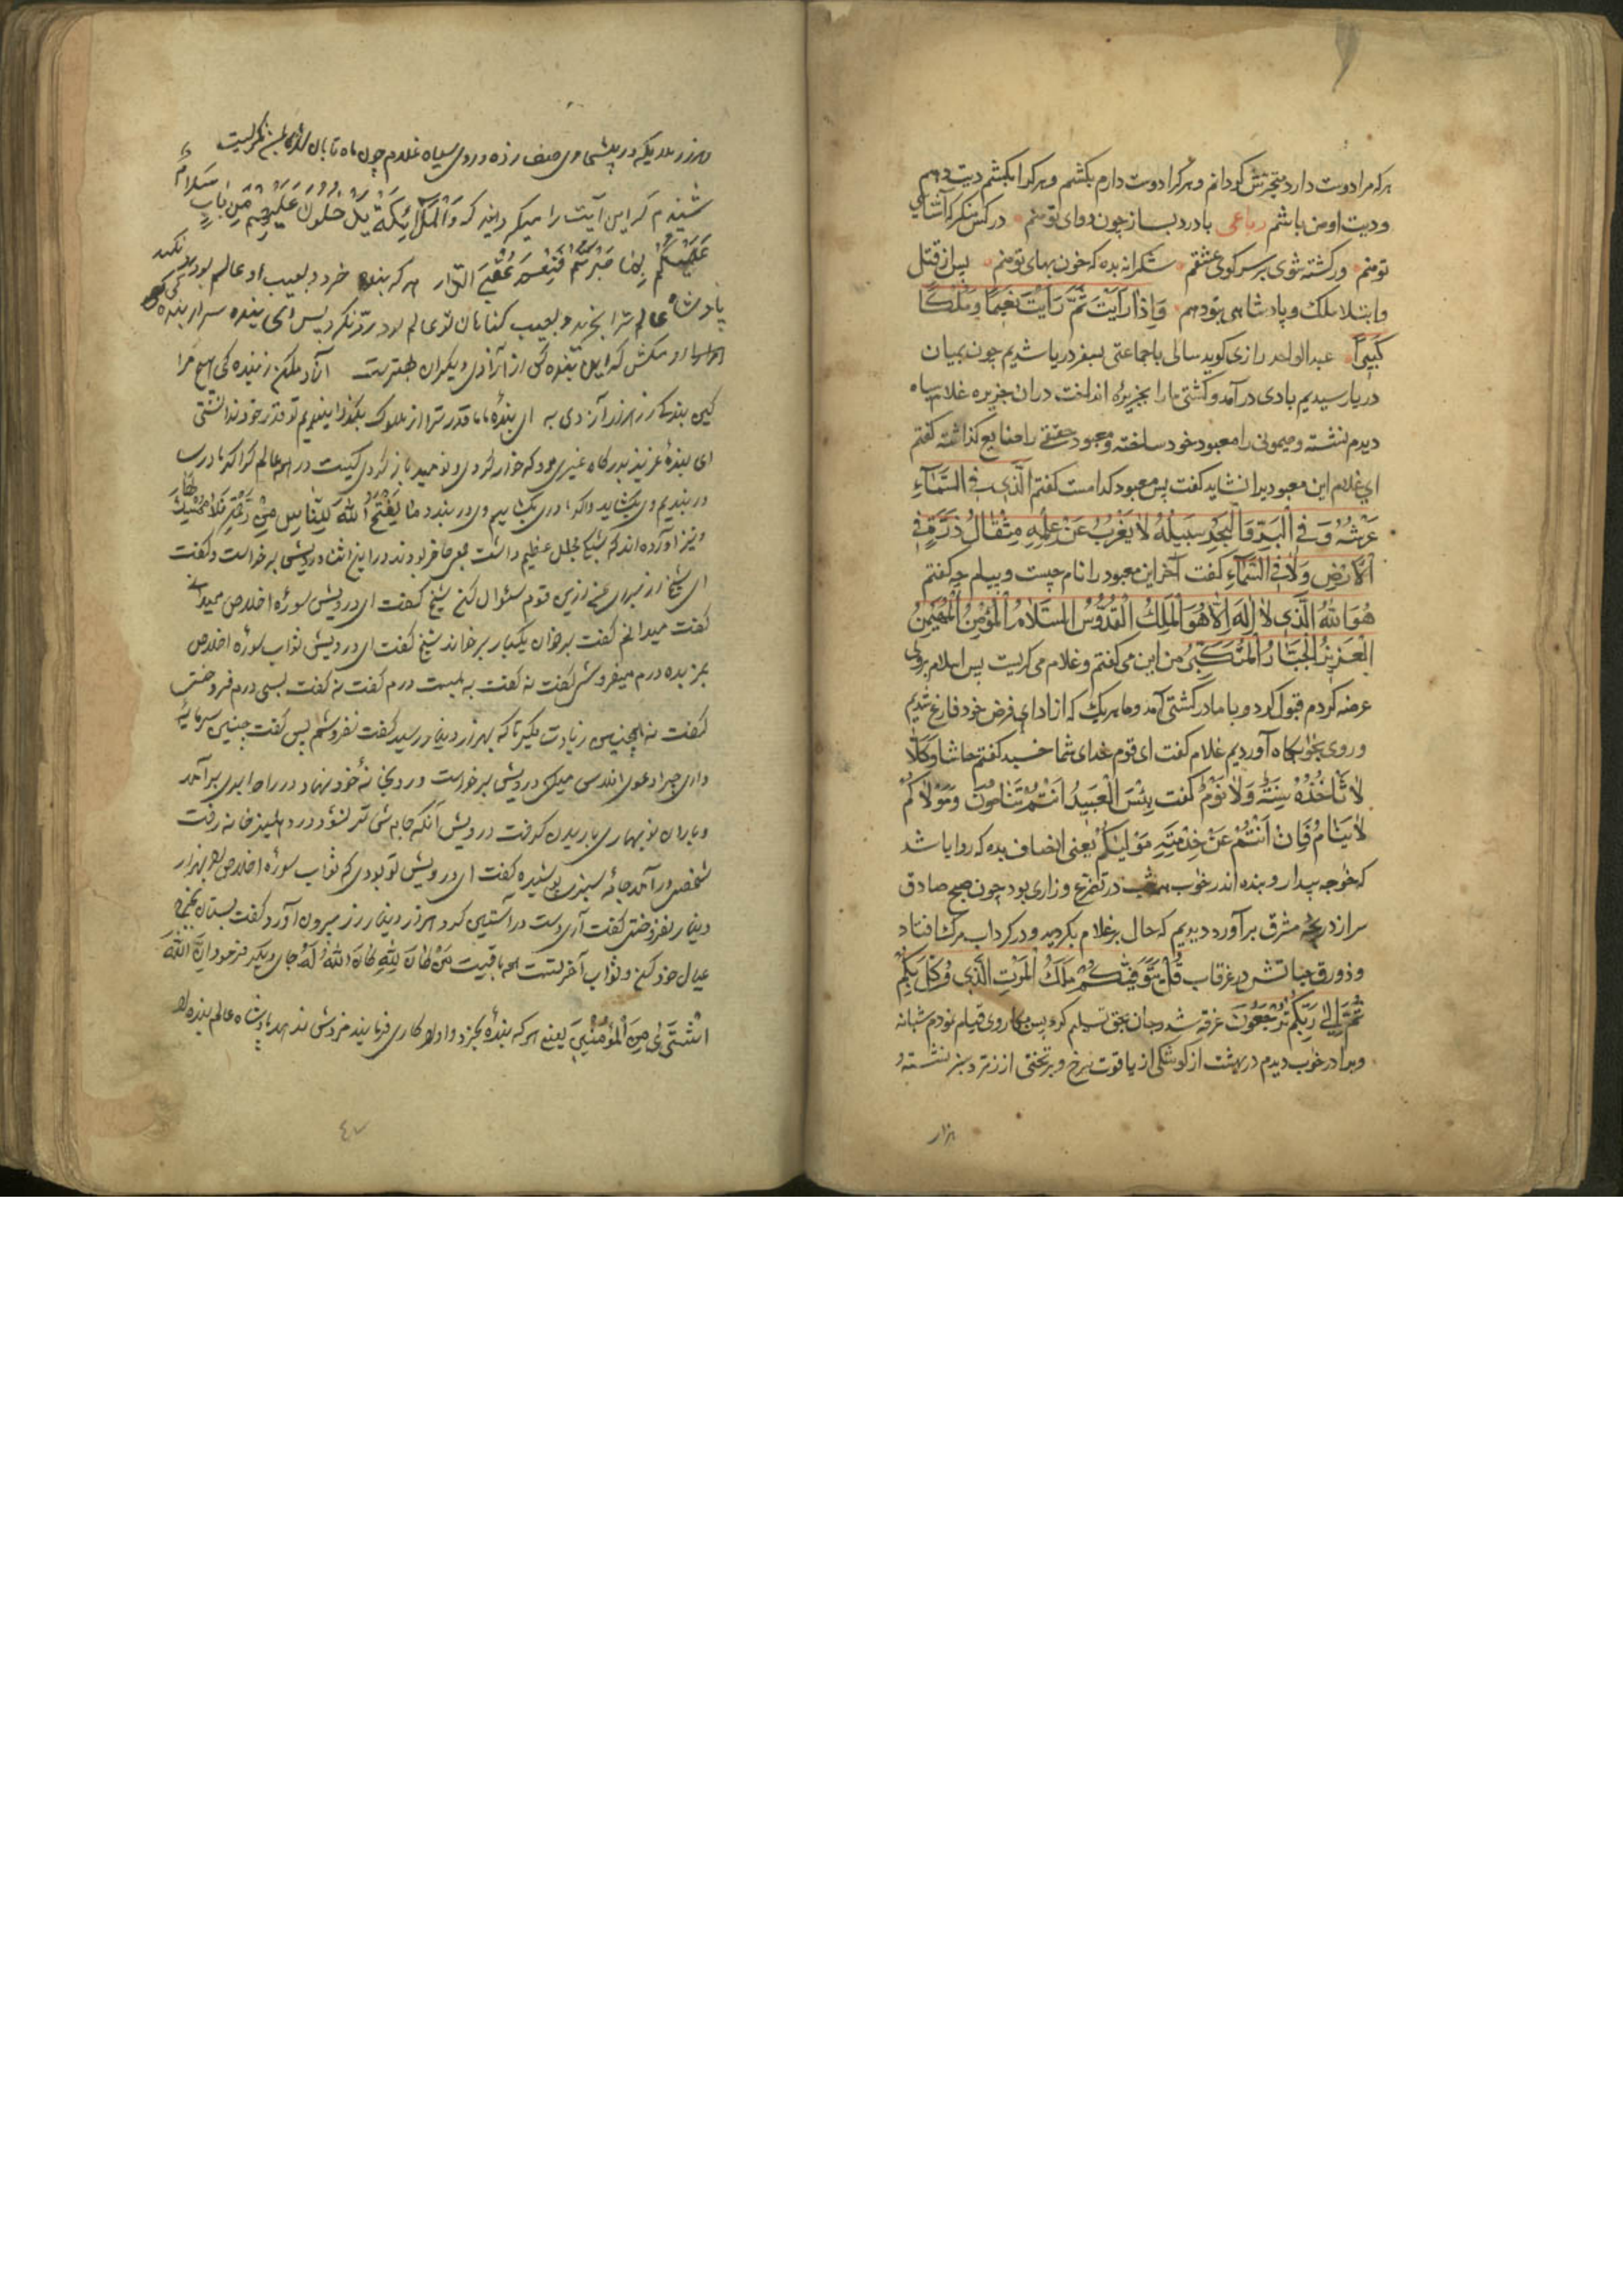 هرکه مرا دوست دارد متحیرش گردانم و هرکرا دوست دارم بکشم و هرکرا بکشم دیت دهم
ودیت او من باشم رباعی بادرد بساز چون دوای تو منم در کس منکر که آشنای
تو منم ورکشته شوی بر سر کوی عشقم شکرانه بده که خون بهای تو منم پس از قتل
وابتلا ملک و پادشاهی بتو دهم وَاِذَا رَاَیْتَ ثَمَّ رَاَیْتَ نَعِیمًا وَمُلْکًا
کَبِیرًا عبدالواحد رازی کوید سالی باجماعتی بسفر دریا شدیم چون بمیان
دریا رسیدیم بادی در آمد و کشتی ما را بجزیره انداخت دران جزیره غلام سیاه
دیدم نشسته و میمونی را معبود خود ساخته و معبود حقیقی را ضایع کذاشته کفتم
ای غلام این معبود برا نشاید کفت پس معبود کدامست کفتم اَلَّذِی فِی السَّمَآءِ
عَرْشُهُ وَفِی الْبَرِّ وَالْبَحْرِ سَبِیلُهُ لَا یَعْزُبُ عَنْ عِلْمِهِ مِثْقَالُ ذَرَّةٍ فِی
الْاَرْضِ وَلَا فِی السَّمَآءِ کفت آخر این معبود را نام چیست وبیلم چه کفتم
هُوَ اللّٰهُ الَّذِی لَا اِلٰهَ اِلَّا هُوَ الْمَلِکُ الْقُدُّوسُ السَّلَامُ الْمُؤْمِنُ الْمُهَیْمِنُ
الْعَزِیزُ الْجَبَّارُ الْمُتَکَبِّرُ من این می کفتم و غلام می کریست پس اسلام بروی
عرضه کردم قبول کرد و با ما در کشتی آمد و ما هریک که از ادای فرض خود فارغ شدیم
وروی بخوابکاه آوردیم غلام کفت ای قوم خدای شما خسبد کفتم حاشا و کلا
لَا تَأْخُذُهُ سِنَةٌ وَلَا نَوْمٌ کفت بِئْسَ الْعَبِیدُ اَنْتُمْ تَنَامُونَ وَمَوْلَاکُمْ
لَا یَنَامُ فَاِنْ اَنْتُمْ عَنْ خِدْمَتِهِ مَوْلَیٰکُمْ یعنی انصاف بده که روا باشد
که خواجه بیدار و بنده اندر خواب همه شب در تضرع و زاری بود چون صبح صادق
سر از دریچه مشرق برآورد دیدیم که حال بر غلام بکردید و در کرداب مرک افتاد
وزورق حیاتش در غرقاب قُلْ یَتَوَفّٰیکُمْ مَلَکُ الْمَوْتِ الَّذِی وُکِّلَ بِکُمْ
ثُمَّ اِلٰی رَبِّکُمْ تُرْجَعُونَ غرقه شد و جان بحق تسلیم کرد پس روی قیام نمودم شبانه
ویرا در خواب دیدم در بهشت از کوشکی از یاقوت سرخ و برتختی از زمرد سبز نشسته و
هزار
شنیدم که این آیت را میکفت وَالْمَلٰٓئِکَةُ یَدْخُلُونَ عَلَیْهِمْ مِنْ کُلِّ بَابٍ سَلَامٌ
عَلَیْکُمْ بِمَا صَبَرْتُمْ فَنِعْمَ عُقْبَی الدَّارِ هر که بنده خرد و بعیب او عالم بود
پادشاه عالم ترا بخرید و بعیب کناهان تو عالم بود رد نکرد پس ای بنده سر از بنده کی
ای بنده ما قدر ترا از ملوک بکذرانیدیم تو قدر خود ندانستی
ای بنده عزیز بدرکاه غیری مرو که خوار کردی و نومید باز کردی کیست در همه عالم
مَا یَفْتَحِ اللّٰهُ لِلنَّاسِ مِنْ رَحْمَةٍ فَلَا مُمْسِکَ لَهَا
ونیز آورده اند که شیخی مجلس عظیم داشت جمعی حاضر بودند در این اثنا درویشی برخواست و کفت
ای شیخ از برای من ازین قوم سئوال کن شیخ کفت ای درویش سوره اخلاص میدانی
کفت میدانم کفت برخوان یکبار برخواند شیخ کفت ای درویش ثواب سوره اخلاص
بمن بده درم میفروشی کفت نه کفت به بیست درم کفت نه کفت بسی درم فروختی
کفت نه همچنین زیادت میکرد تا که بهزار دینار رسید کفت نفروشم پس کفت چنین سرمایه
داری چرا دعوی افلاس میکنی درویش برخواست و روی بخانه خود نهاد در راه ابری برآمد
وباران نوبهاری باریدن کرفت درویش آنکه جامه اش تر نشود در دهلیز خانه رفت
شخصی در آمد جامه سبزی پوشیده کفت ای درویش تو بودی که ثواب سوره اخلاص بهزار
دینار نفروختی کفت آری دست در آستین کرد و هزار دینار زر بیرون آورد و کفت بستان
عیال خود کن و ثواب آخرتت باقیست مَنْ کَانَ لِلّٰهِ کَانَ اللّٰهُ لَهُ جای دیکر فرمود اِنَّ اللّٰهَ
اشْتَرٰی مِنَ الْمُؤْمِنِینَ یعنی هر که بنده بخرد و او را کاری فرمایند مزدش ندهد پادشاه عالم بنده